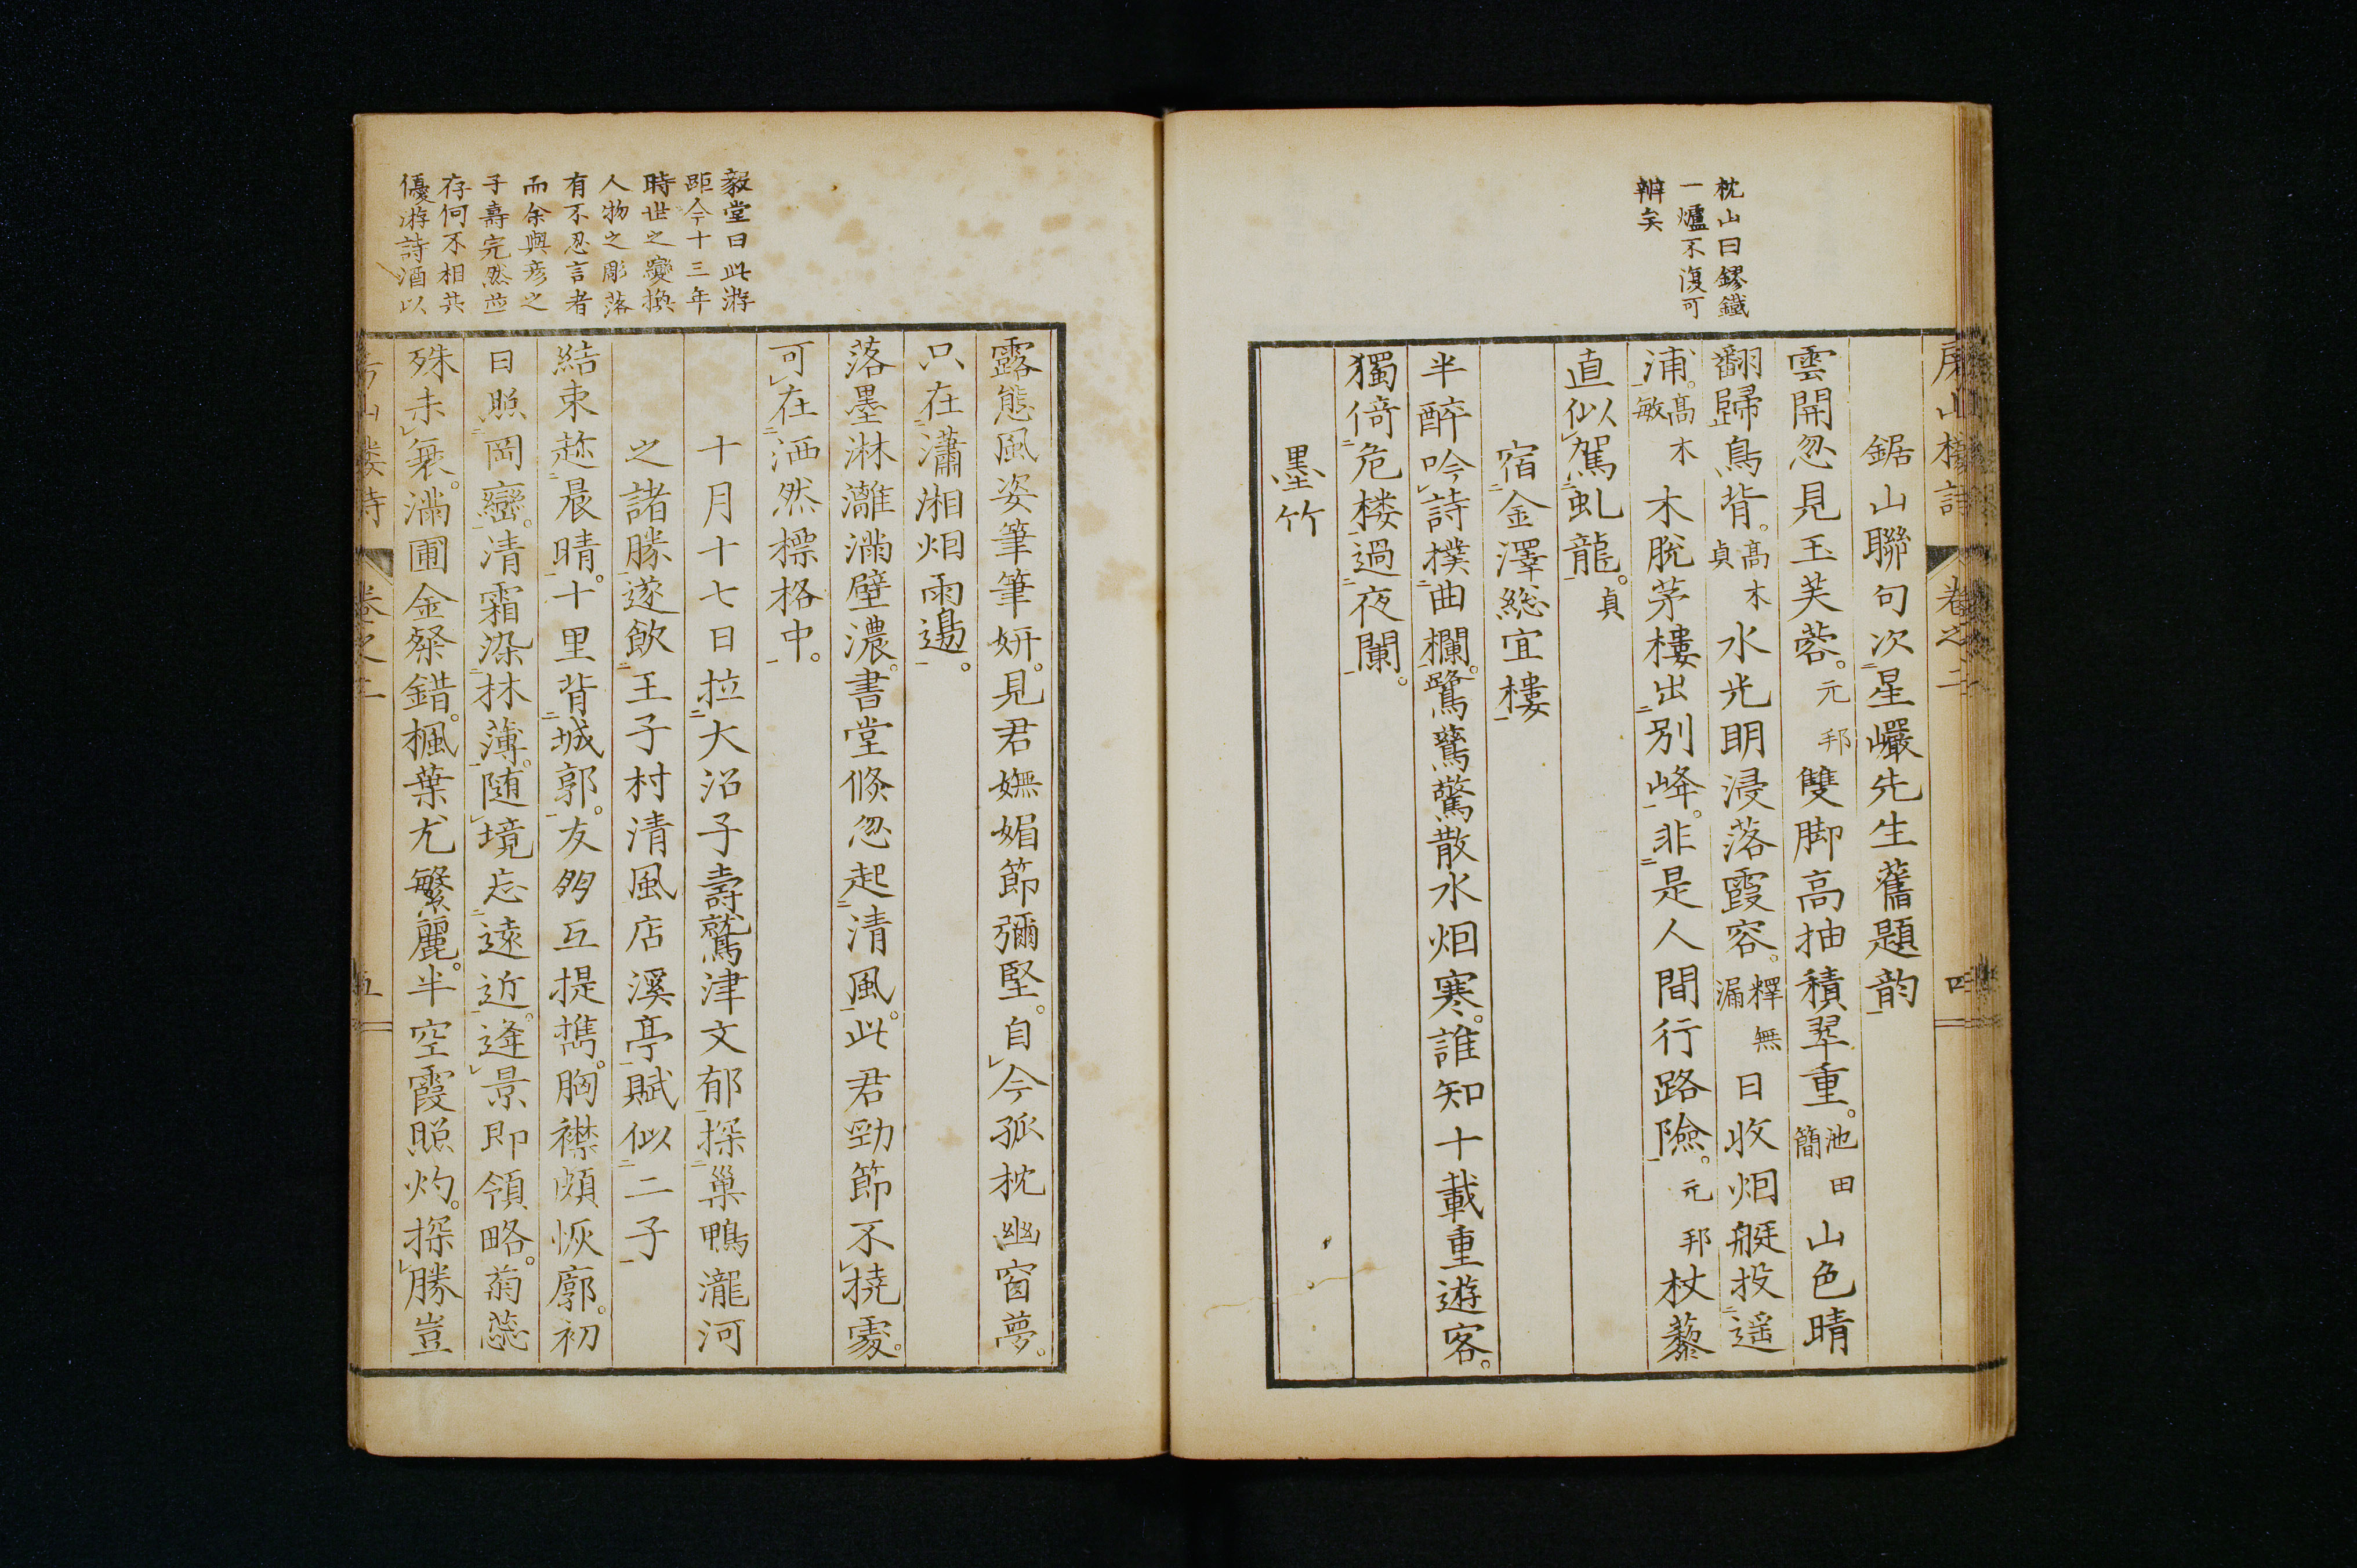 枕山曰鏐鐵
一爐不復可
辨矣
房山樓詩 卷之二 四
鋸山聯句次星巖先生舊題韵
雲開忽見玉芙蓉。元邦雙脚高抽積翠重。池田簡山色晴
翻歸鳥背。高木貞水光明浸落霞容。釋無漏日收烟艇投遥
浦。高木敏木脫茅樓出別峰。非是人間行路險。元邦杖藜
直似駕虬龍。貞
宿金澤総宜樓
半醉吟詩撲曲欄。鷺鶿驚散水烟寒。誰知十載重遊客。
獨倚危楼過夜闌。
墨竹
毅堂曰此游
距今十三年
時世之變換
人物之彫落
有不忍言者
而余與彦之
子壽完然並
存何不相共
優游詩酒以
露態風姿筆筆妍。見君嫵媚節彌堅。自今孤枕幽窗夢。
只在瀟湘烟雨邊。
落墨淋灕滿壁濃。書堂倐忽起清風。此君勁節不撓處。
可在洒然標格中。
十月十七日拉大沼子壽鷲津文郁探巢鴨瀧河
之諸勝遂飲王子村清風店溪亭賦似二子
結束趂晨晴。十里背城郭。友多互提携。胸襟頗恢廓。初
日照岡巒。清霜染林薄。随境忘遠近。逢景即領略。菊蕊
殊未衰。滿圃金粲錯。楓葉尤繁麗。半空霞照灼。探勝豈
楼詩 卷之二 五